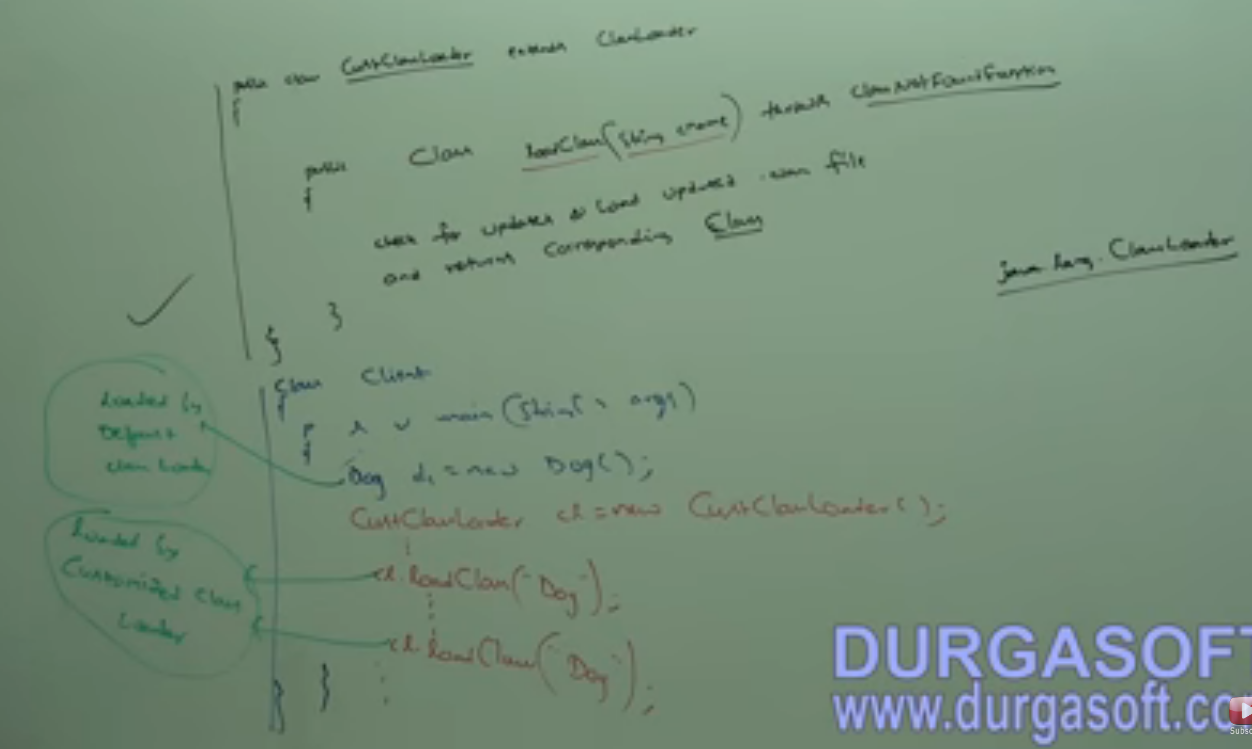 public class CustClassLoader extends ClassLoader
{
public Class loadClass(String cname) throws ClassNotFoundException
{
check for updates & load updated .class file
and returns corresponding Class
}
}
java.lang.ClassLoader
class Client
{
p s v main(String[] args)
{
Dog d1 = new Dog();
CustClassLoader cl = new CustClassLoader();
cl.loadClass("Dog");
cl.loadClass("Dog");
}
}
Loaded by
Default
class Loader
Loaded by
Customized Class
Loader
DURGASOFT
www.durgasoft.co
Subsc